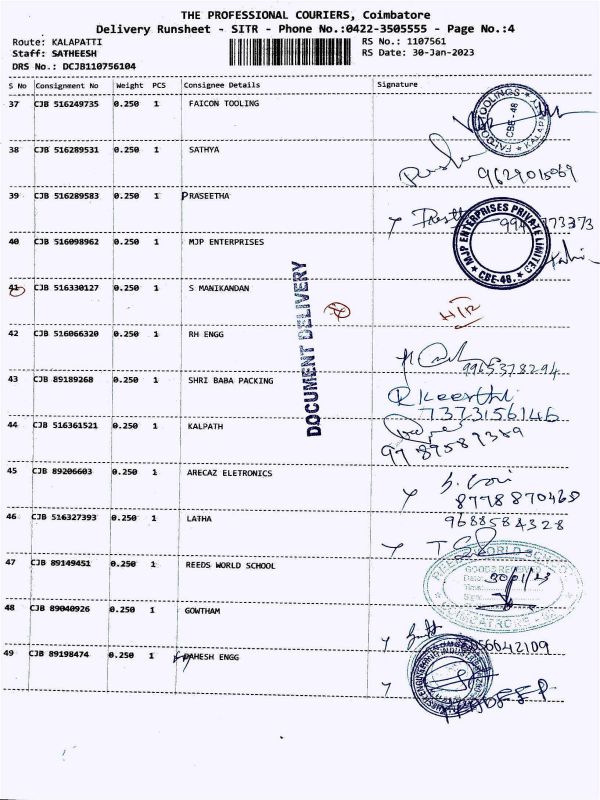 THE PROFESSIONAL COURIERS, Coimbatore
Delivery Runsheet - SITR - Phone No.:0422-3505555 - Page No.:4
Route: KALAPATTI RS No.: 1107561
Staff: SATHEESH RS Date: 30-Jan-2023
DRS No.: DCJB110756104
S No Consignment No Weight PCS Consignee Details Signature
37 CJB 516249735 0.250 1 FAICON TOOLING
CBE - 48
38 CJB 516289531 0.250 1 SATHYA
9629015069
39 CJB 516289583 0.250 1 PRASEETHA
40 CJB 516098962 0.250 1 MJP ENTERPRISES
MJP ENTERPRISES PRIVATE LIMITED
CBE-48.
41 CJB 516330127 0.250 1 S MANIKANDAN
DOCUMENT DELIVERY
42 CJB 516066320 0.250 1 RH ENGG
9965378294
43 CJB 89189268 0.250 1 SHRI BABA PACKING
R Keerthi
7373156146
44 CJB 516361521 0.250 1 KALPATH
9789589389
45 CJB 89206603 0.250 1 ARECAZ ELETRONICS
8778870468
46 CJB 516327393 0.250 1 LATHA
9688584328
47 CJB 89149451 0.250 1 REEDS WORLD SCHOOL
REEDS WORLD SCHOOL
GOODS RECEIVED
Date: 30/1/23
Time:
Sign:
48 CJB 89040926 0.250 1 GOWTHAM
49 CJB 89198474 0.250 1 MAHESH ENGG